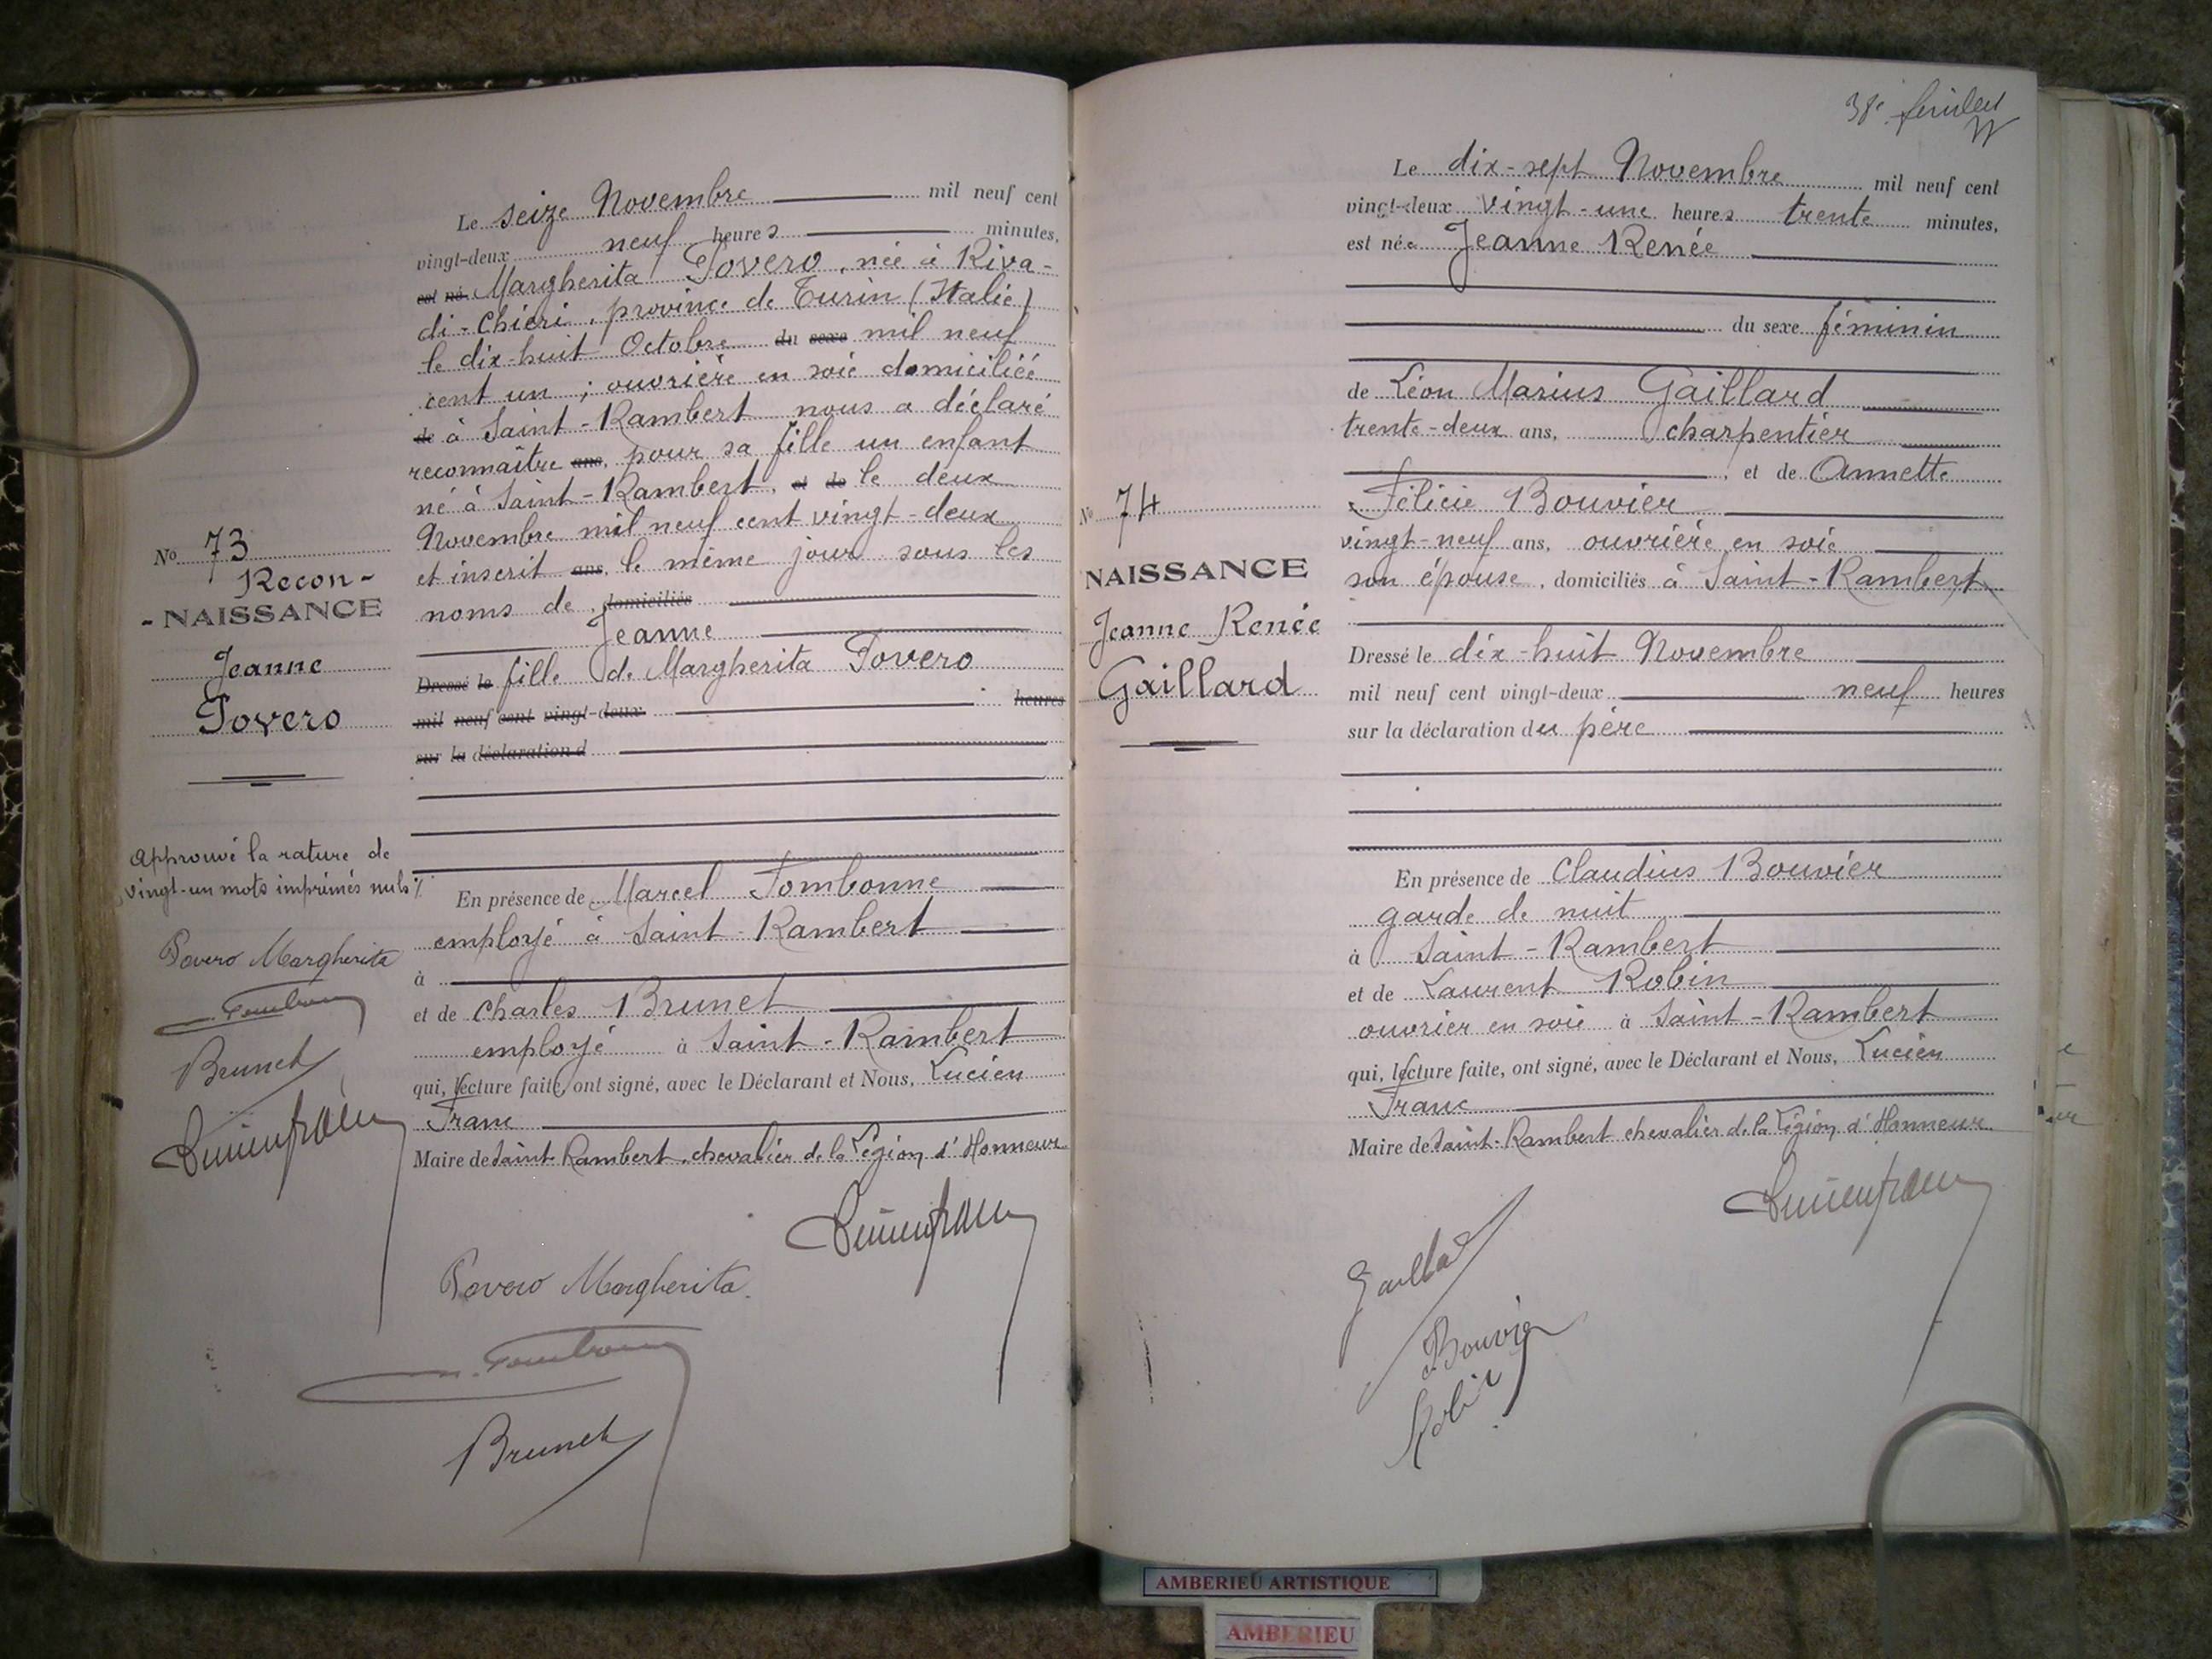 Le seize Novembre mil neuf cent
vingt-deux neuf heures minutes,
est né Margherita Povero, née à Riva-
di-Chieri, province de Turin (Italie)
le dix-huit Octobre du sexe mil neuf
cent un ; ouvrière en soie domiciliée
de à Saint-Rambert nous a déclaré
reconnaître ans, pour sa fille un enfant
né à Saint-Rambert, et de le deux
Novembre mil neuf cent vingt-deux
et inscrit ans, le même jour sous les
noms de domiciliés
Jeanne
Dressé le fille de Margherita Povero
mil neuf cent vingt-deux heures
sur la déclaration d
En présence de Marcel Tombonne
employé à Saint-Rambert
à
et de Charles Brunet
employé à Saint-Rambert
qui, lecture faite, ont signé, avec le Déclarant et Nous, Lucien
Franc
Maire de Saint-Rambert, chevalier de la Légion d'Honneur
No 73
Recon-
-NAISSANCE
Jeanne
Povero
Approuvé la rature de
vingt-un mots imprimés nuls
Povero Margherita
Brunet
Lucien Franc
Lucien Franc
Povero Margherita.
Brunet
38e feuillet
Le dix-sept Novembre mil neuf cent
vingt-deux vingt-une heures trente minutes,
est née Jeanne Renée
du sexe féminin
de Léon Marius Gaillard
trente-deux ans, charpentier
, et de Annette
Félicie Bouvier
vingt-neuf ans, ouvrière en soie
son épouse, domiciliés à Saint-Rambert
Dressé le dix-huit Novembre
mil neuf cent vingt-deux neuf heures
sur la déclaration du père
En présence de Claudius Bouvier
garde de nuit
à Saint-Rambert
et de Laurent Robin
ouvrier en soie à Saint-Rambert
qui, lecture faite, ont signé, avec le Déclarant et Nous, Lucien
Franc
Maire de Saint-Rambert chevalier de la Légion d'Honneur
No 74
NAISSANCE
Jeanne Renée
Gaillard
Lucien Franc
Gaillard
Bouvier
Robin
AMBERIEU ARTISTIQUE
AMBERIEU